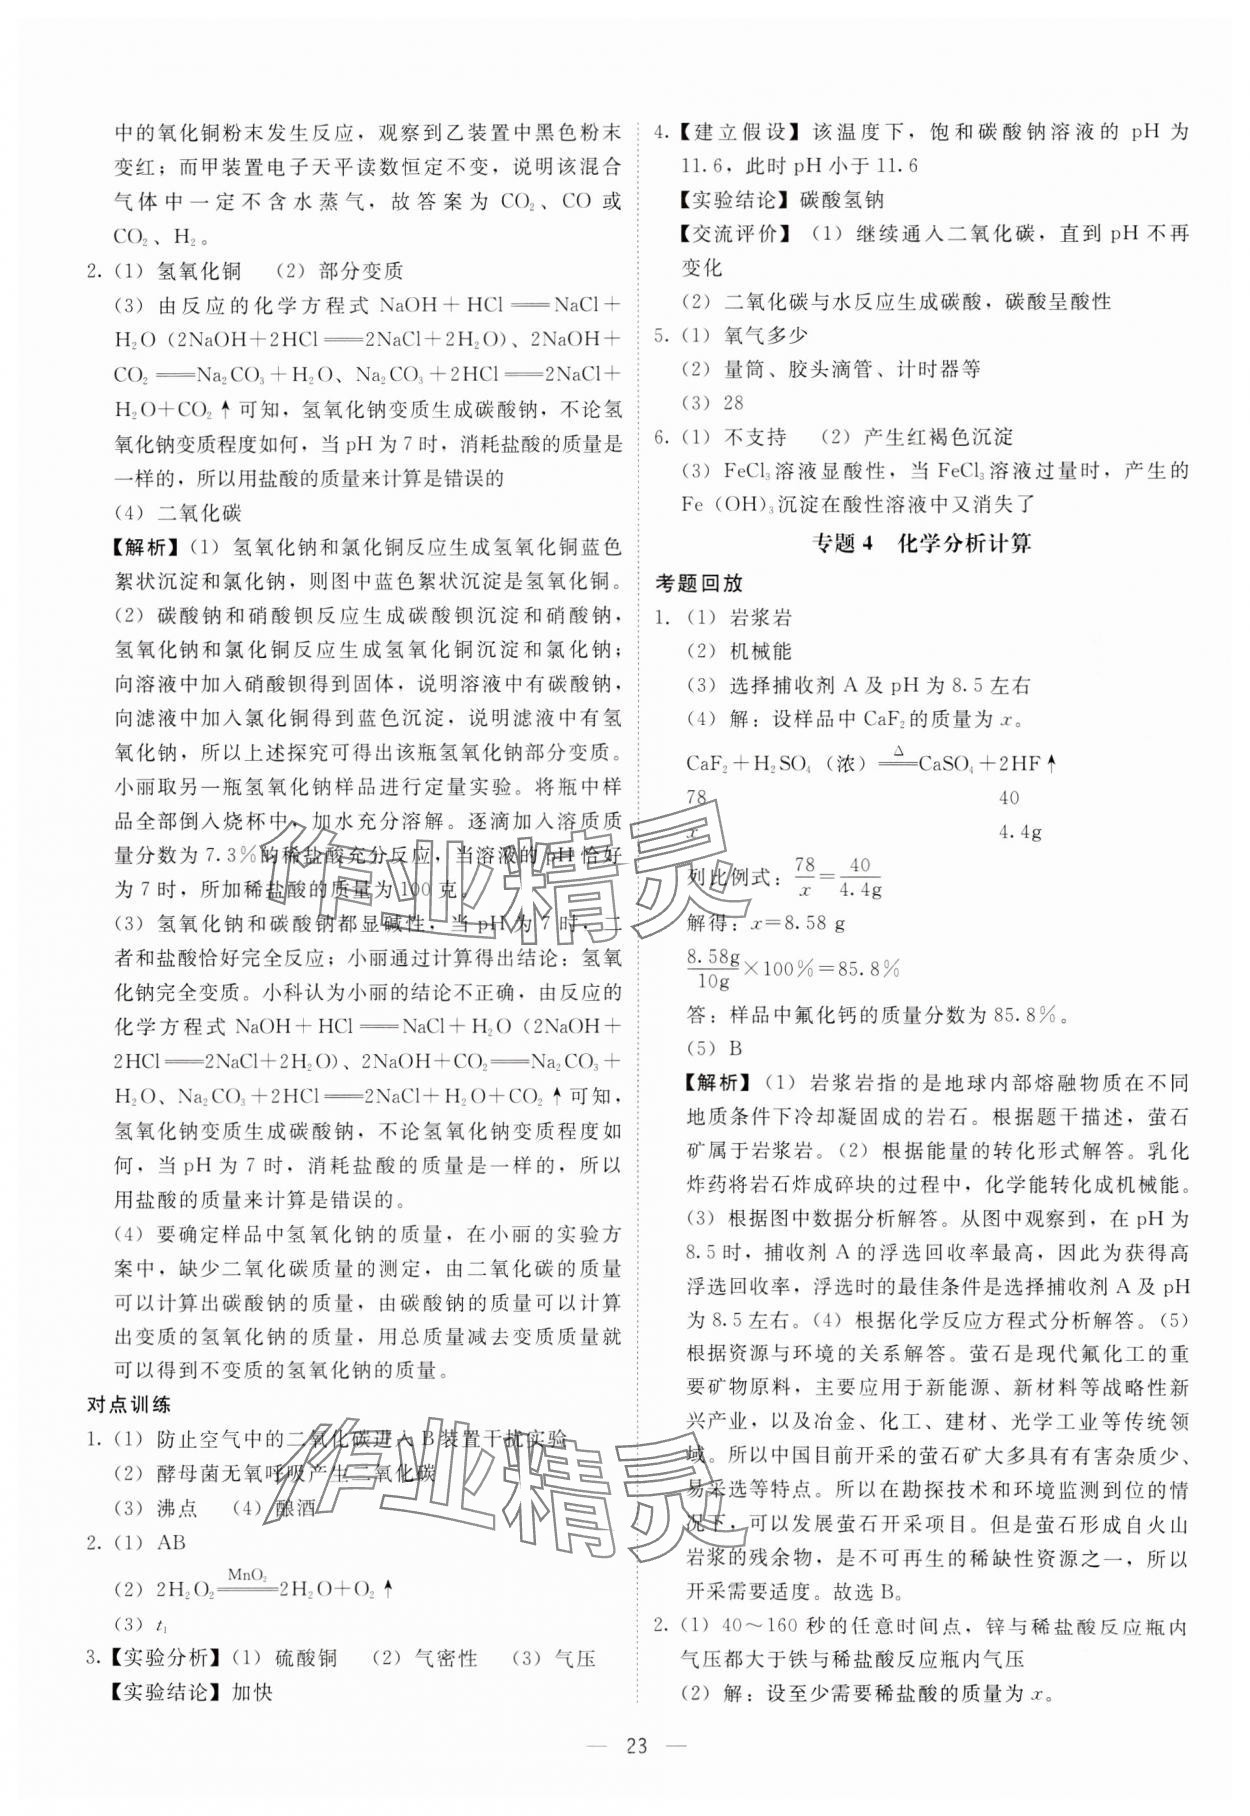 中的氧化铜粉末发生反应，观察到乙装置中黑色粉末
变红；而甲装置电子天平读数恒定不变，说明该混合
气体中一定不含水蒸气，故答案为 CO₂、CO 或
CO₂、H₂。
2. (1) 氢氧化铜 (2) 部分变质
(3) 由反应的化学方程式 NaOH＋HCl══NaCl＋
H₂O（2NaOH＋2HCl══2NaCl＋2H₂O）、2NaOH＋
CO₂══Na₂CO₃＋H₂O、Na₂CO₃＋2HCl══2NaCl＋
H₂O＋CO₂↑可知，氢氧化钠变质生成碳酸钠，不论氢
氧化钠变质程度如何，当 pH 为 7 时，消耗盐酸的质量是
一样的，所以用盐酸的质量来计算是错误的
(4) 二氧化碳
【解析】(1) 氢氧化钠和氯化铜反应生成氢氧化铜蓝色
絮状沉淀和氯化钠，则图中蓝色絮状沉淀是氢氧化铜。
(2) 碳酸钠和硝酸钡反应生成碳酸钡沉淀和硝酸钠，
氢氧化钠和氯化铜反应生成氢氧化铜沉淀和氯化钠；
向溶液中加入硝酸钡得到固体，说明溶液中有碳酸钠，
向滤液中加入氯化铜得到蓝色沉淀，说明滤液中有氢
氧化钠，所以上述探究可得出该瓶氢氧化钠部分变质。
小丽取另一瓶氢氧化钠样品进行定量实验。将瓶中样
品全部倒入烧杯中，加水充分溶解。逐滴加入溶质质
量分数为 7.3％的稀盐酸充分反应，当溶液的 pH 恰好
为 7 时，所加稀盐酸的质量为 100 克。
(3) 氢氧化钠和碳酸钠都显碱性，当 pH 为 7 时，二
者和盐酸恰好完全反应；小丽通过计算得出结论：氢氧
化钠完全变质。小科认为小丽的结论不正确，由反应的
化学方程式 NaOH＋HCl══NaCl＋H₂O（2NaOH＋
2HCl══2NaCl＋2H₂O）、2NaOH＋CO₂══Na₂CO₃＋
H₂O、Na₂CO₃＋2HCl══2NaCl＋H₂O＋CO₂↑可知，
氢氧化钠变质生成碳酸钠，不论氢氧化钠变质程度如
何，当 pH 为 7 时，消耗盐酸的质量是一样的，所以
用盐酸的质量来计算是错误的。
(4) 要确定样品中氢氧化钠的质量，在小丽的实验方
案中，缺少二氧化碳质量的测定，由二氧化碳的质量
可以计算出碳酸钠的质量，由碳酸钠的质量可以计算
出变质的氢氧化钠的质量，用总质量减去变质质量就
可以得到不变质的氢氧化钠的质量。
对点训练
1. (1) 防止空气中的二氧化碳进入 B 装置干扰实验
(2) 酵母菌无氧呼吸产生二氧化碳
(3) 沸点 (4) 酿酒
2. (1) AB
(2) 2H₂O₂ ══MnO₂══ 2H₂O＋O₂↑
(3) t₁
3. 【实验分析】(1) 硫酸铜 (2) 气密性 (3) 气压
【实验结论】加快
4. 【建立假设】该温度下，饱和碳酸钠溶液的 pH 为
11.6，此时 pH 小于 11.6
【实验结论】碳酸氢钠
【交流评价】(1) 继续通入二氧化碳，直到 pH 不再
变化
(2) 二氧化碳与水反应生成碳酸，碳酸呈酸性
5. (1) 氧气多少
(2) 量筒、胶头滴管、计时器等
(3) 28
6. (1) 不支持 (2) 产生红褐色沉淀
(3) FeCl₃溶液显酸性，当 FeCl₃溶液过量时，产生的
Fe (OH)₃沉淀在酸性溶液中又消失了
专题 4 化学分析计算
考题回放
1. (1) 岩浆岩
(2) 机械能
(3) 选择捕收剂 A 及 pH 为 8.5 左右
(4) 解：设样品中 CaF₂的质量为 x。
CaF₂＋H₂SO₄（浓）══△══CaSO₄＋2HF↑
78 40
x 4.4g
列比例式：78/x＝40/4.4g
解得：x＝8.58 g
8.58g/10g×100％＝85.8％
答：样品中氟化钙的质量分数为 85.8％。
(5) B
【解析】(1) 岩浆岩指的是地球内部熔融物质在不同
地质条件下冷却凝固成的岩石。根据题干描述，萤石
矿属于岩浆岩。(2) 根据能量的转化形式解答。乳化
炸药将岩石炸成碎块的过程中，化学能转化成机械能。
(3) 根据图中数据分析解答。从图中观察到，在 pH 为
8.5 时，捕收剂 A 的浮选回收率最高，因此为获得高
浮选回收率，浮选时的最佳条件是选择捕收剂 A 及 pH
为 8.5 左右。(4) 根据化学反应方程式分析解答。(5)
根据资源与环境的关系解答。萤石是现代氟化工的重
要矿物原料，主要应用于新能源、新材料等战略性新
兴产业，以及冶金、化工、建材、光学工业等传统领
域。所以中国目前开采的萤石矿大多具有有害杂质少、
易采选等特点。所以在勘探技术和环境监测到位的情
况下，可以发展萤石开采项目。但是萤石形成自火山
岩浆的残余物，是不可再生的稀缺性资源之一，所以
开采需要适度。故选 B。
2. (1) 40～160 秒的任意时间点，锌与稀盐酸反应瓶内
气压都大于铁与稀盐酸反应瓶内气压
(2) 解：设至少需要稀盐酸的质量为 x。
— 23 —
作业精灵
作业精灵